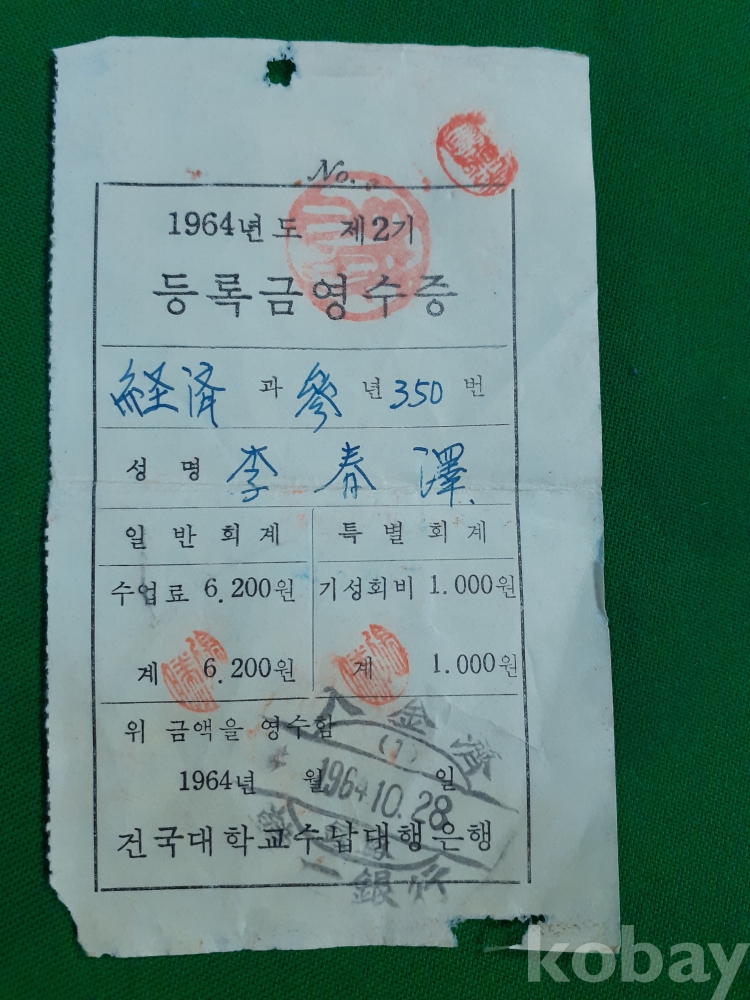 No.
1964년도 제2기
등록금영수증
経済 과 参 년 350 번
성 명 李 春 澤
일 반 회 계 특 별 회 계
수업료 6.200원 기성회비 1.000원
계 6.200원 계 1.000원
위 금액을 영수함
入金濟
(1)
1964년 월 일
1964.10.28
건국대학교수납대행은행
kobay